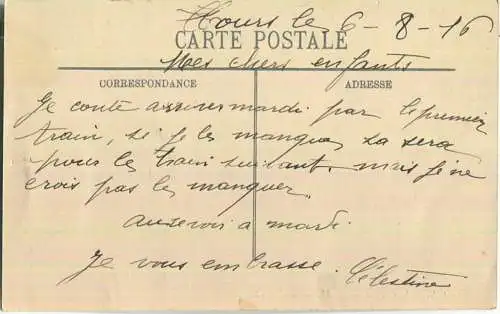 Tours le 6-8-16
CARTE POSTALE
Mes chers enfants
CORRESPONDANCE
ADRESSE
Je conte arriver mardi par le premier
train, si je les manquer sa sera
pour le train suivant, mais je ne
crois pas le manquer.
aurevoir a mardi
Je vous embrasse. Célestine